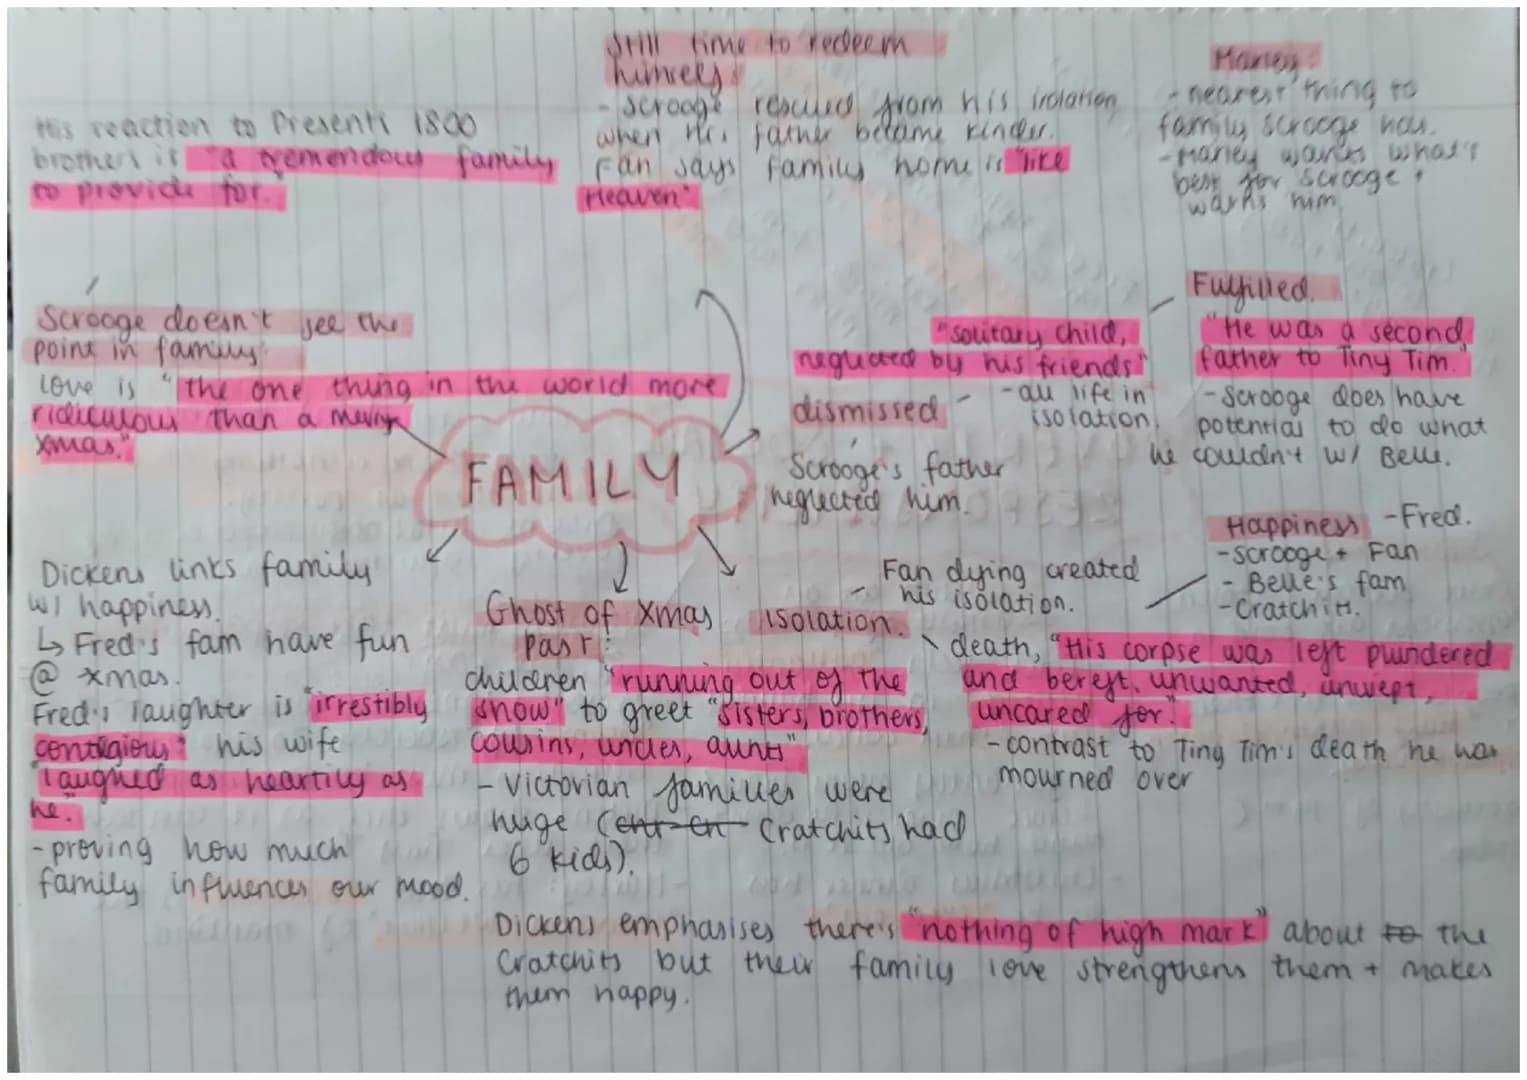 Still time to redeem
himself:
- Scrooge rescued from his isolation
when his father became kinder.
Fan says family home is "like
Heaven"
Marley:
- nearest thing to
family Scrooge has.
- Marley wants what's
best for Scrooge +
warns him
His reaction to Present's 1800
brothers is "a tremendous family
to provide for."
Scrooge doesn't see the
point in family:
Love is "the one thing in the world more
ridiculous than a merry
xmas."
FAMILY
"solitary child,
neglected by his friends"
- all life in
isolation.
dismissed
Scrooge's father
neglected him.
Fulfilled.
"He was a second
father to Tiny Tim."
- Scrooge does have
potential to do what
he couldn't w/ Belle.
Happiness - Fred.
- Scrooge + Fan
- Belle's fam
- Cratchits.
Dickens links family
w/ happiness.
↳ Fred's fam have fun
@ xmas.
Fred's laughter is "irrestibly
contagious" his wife
"laughed as heartily as
he."
- proving how much
family influences our mood.
Ghost of Xmas
Past:
children "running out of the
snow" to greet "sisters, brothers,
cousins, uncles, aunts"
- Victorian families were
huge (Cratchits had
6 kids).
Isolation.
Fan dying created
his isolation.
death, "His corpse was left plundered
and bereft, unwanted, unwept,
uncared for."
- contrast to Ting Tim's death he was
mourned over
Dickens emphasises there's "nothing of high mark" about to the
Cratchits but their family love strengthens them + makes
them happy.